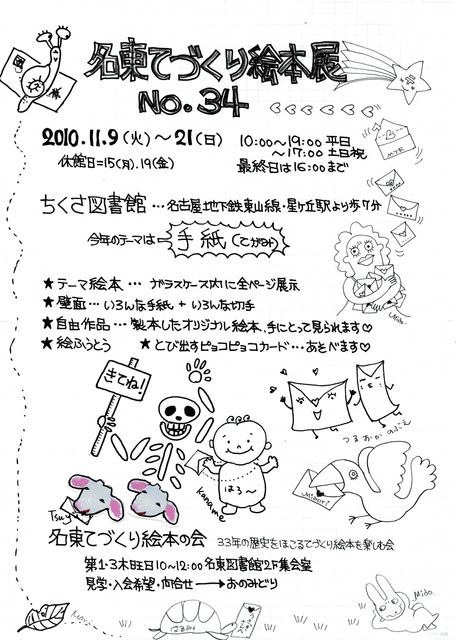 名東てづくり絵本展
No.34
2010.11.9(火)〜21(日)
休館日=15(月).19(金)
10:00〜19:00 平日
〜17:00 土日祝
最終日は16:00まで
ちくさ図書館…名古屋地下鉄東山線・星ヶ丘駅より歩7分
今年のテーマは 手紙(てがみ)
★テーマ絵本…ガラスケース内に全ページ展示
★壁面…いろんな手紙+いろんな切手
★自由作品…製本したオリジナル絵本、手にとって見られます♡
★絵ふうとう ★とび出すピョコピョコカード…あそべます♡
きてね!
つるおかのぶこえ
Midori
Kaname
Tsug
名東てづくり絵本の会 33年の歴史をほこるてづくり絵本を楽しむ会
第1・3木旺日10〜12:00名東図書館2F集会室
見学・入会希望・向合せ→おのみどり
Mido.
はるみ